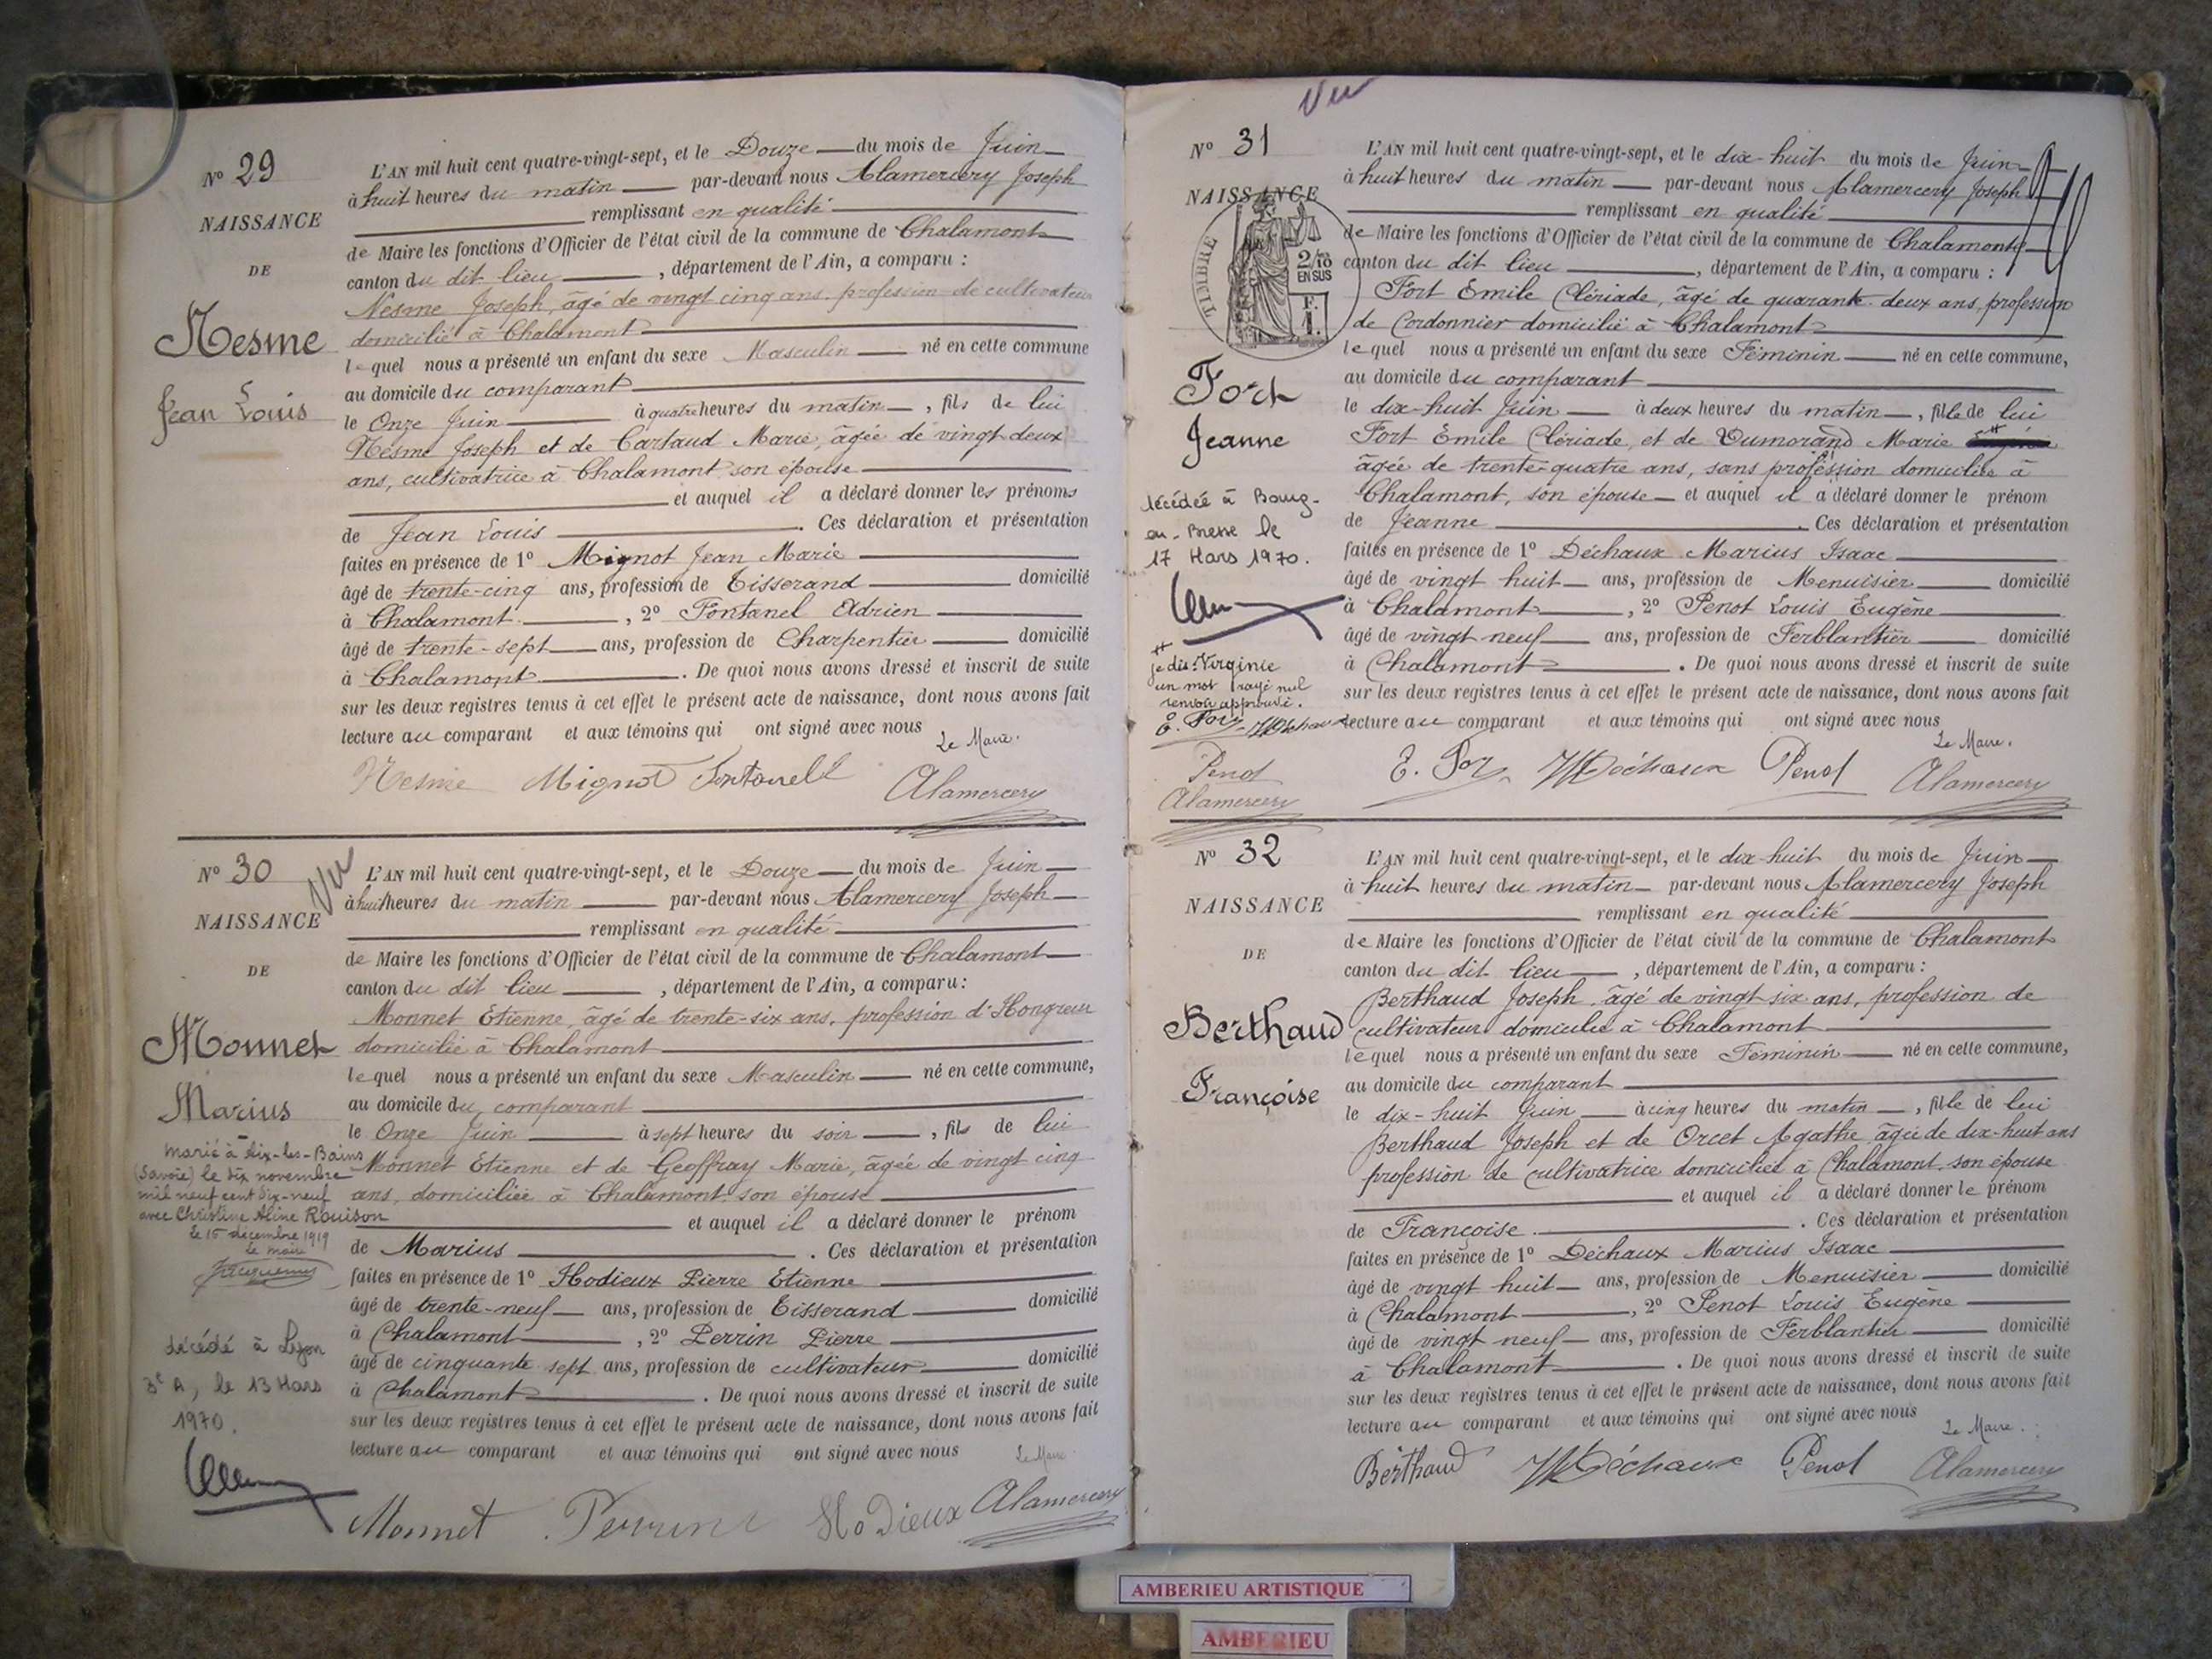 N° 29
NAISSANCE
DE
Nesme
Jean Louis
L'AN mil huit cent quatre-vingt-sept, et le Douze du mois de Juin
à huit heures du matin par-devant nous Alamercery Joseph
remplissant en qualité
de Maire les fonctions d'Officier de l'état civil de la commune de Chalamont
canton du dit lieu , département de l'Ain, a comparu :
Nesme Joseph, âgé de vingt cinq ans, profession de cultivateur
domicilié à Chalamont
lequel nous a présenté un enfant du sexe Masculin né en cette commune
au domicile du comparant
le Onze Juin à quatre heures du matin , fils de lui
Nesme Joseph et de Cartaud Marie, âgée de vingt deux
ans, cultivatrice à Chalamont son épouse
et auquel il a déclaré donner les prénoms
de Jean Louis . Ces déclaration et présentation
faites en présence de 1° Mignot Jean Marie
âgé de trente-cinq ans, profession de Tisserand domicilié
à Chalamont , 2° Fontanel Adrien
âgé de trente-sept ans, profession de Charpentier domicilié
à Chalamont . De quoi nous avons dressé et inscrit de suite
sur les deux registres tenus à cet effet le présent acte de naissance, dont nous avons fait
lecture au comparant et aux témoins qui ont signé avec nous
Le Maire.
Nesme Mignot Fontanell Alamercery
N° 30
Vu
NAISSANCE
DE
Monnet
Marius
marié à Aix-les-Bains
(Savoie) le dix novembre
mil neuf cent dix-neuf
avec Christine Aline Rouison
le 15 décembre 1919
le maire
Jacquemet
décédé à Lyon
3e A, le 13 Mars
1970.
L'AN mil huit cent quatre-vingt-sept, et le Douze du mois de Juin
à huit heures du matin par-devant nous Alamercery Joseph
remplissant en qualité
de Maire les fonctions d'Officier de l'état civil de la commune de Chalamont
canton du dit lieu , département de l'Ain, a comparu :
Monnet Etienne, âgé de trente-six ans, profession d'Hongreur
domicilié à Chalamont
lequel nous a présenté un enfant du sexe Masculin né en cette commune,
au domicile du comparant
le Onze Juin à sept heures du soir , fils de lui
Monnet Etienne et de Geoffray Marie, âgée de vingt cinq
ans, domiciliée à Chalamont son épouse
et auquel il a déclaré donner le prénom
de Marius . Ces déclaration et présentation
faites en présence de 1° Hodieux Pierre Etienne
âgé de trente-neuf ans, profession de Tisserand domicilié
à Chalamont , 2° Perrin Pierre
âgé de cinquante sept ans, profession de cultivateur domicilié
à Chalamont . De quoi nous avons dressé et inscrit de suite
sur les deux registres tenus à cet effet le présent acte de naissance, dont nous avons fait
lecture au comparant et aux témoins qui ont signé avec nous
Le Maire
Monnet Perrin Hodieux Alamercery
Vu
N° 31
NAISSANCE
TIMBRE
2/10
EN SUS
F.
1.
Fort
Jeanne
décédée à Bourg-
en-Bresse le
17 Mars 1970.
je dis: Virginie
un mot rayé nul
renvoi approuvé.
E. Fort MDéchaux
Penot
Alamercery
L'AN mil huit cent quatre-vingt-sept, et le dix-huit du mois de Juin
à huit heures du matin par-devant nous Alamercery Joseph
remplissant en qualité
de Maire les fonctions d'Officier de l'état civil de la commune de Chalamont
canton du dit lieu , département de l'Ain, a comparu :
Fort Emile Clériade, âgé de quarante-deux ans, profession
de Cordonnier domicilié à Chalamont
lequel nous a présenté un enfant du sexe Féminin né en cette commune,
au domicile du comparant
le dix-huit Juin à deux heures du matin , fille de lui
Fort Emile Clériade, et de Dumorand Marie
âgée de trente-quatre ans, sans profession domiciliée à
Chalamont, son épouse et auquel il a déclaré donner le prénom
de Jeanne . Ces déclaration et présentation
faites en présence de 1° Déchaux Marius Isaac
âgé de vingt huit ans, profession de Menuisier domicilié
à Chalamont , 2° Penot Louis Eugène
âgé de vingt neuf ans, profession de Ferblantier domicilié
à Chalamont . De quoi nous avons dressé et inscrit de suite
sur les deux registres tenus à cet effet le présent acte de naissance, dont nous avons fait
lecture au comparant et aux témoins qui ont signé avec nous
Le Maire.
E. Fort MDéchaux Penot Alamercery
N° 32
NAISSANCE
DE
Berthaud
Françoise
L'AN mil huit cent quatre-vingt-sept, et le dix-huit du mois de Juin
à huit heures du matin par-devant nous Alamercery Joseph
remplissant en qualité
de Maire les fonctions d'Officier de l'état civil de la commune de Chalamont
canton du dit lieu , département de l'Ain, a comparu :
Berthaud Joseph, âgé de vingt six ans, profession de
cultivateur domicilié à Chalamont
lequel nous a présenté un enfant du sexe Féminin né en cette commune,
au domicile du comparant
le dix-huit Juin à cinq heures du matin , fille de lui
Berthaud Joseph et de Orcet Agathe âgée de dix-huit ans
profession de cultivatrice domiciliée à Chalamont, son épouse
et auquel il a déclaré donner le prénom
de Françoise . Ces déclaration et présentation
faites en présence de 1° Déchaux Marius Isaac
âgé de vingt huit ans, profession de Menuisier domicilié
à Chalamont , 2° Penot Louis Eugène
âgé de vingt neuf ans, profession de Ferblantier domicilié
à Chalamont . De quoi nous avons dressé et inscrit de suite
sur les deux registres tenus à cet effet le présent acte de naissance, dont nous avons fait
lecture au comparant et aux témoins qui ont signé avec nous
Le Maire.
Berthaud MDéchaux Penot Alamercery
AMBERIEU ARTISTIQUE
AMBERIEU